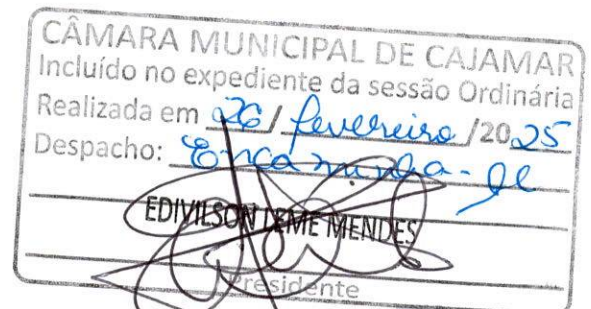 CÂMARA MUNICIPAL DE CAJAMAR
Incluído no expediente da sessão Ordinária
Realizada em 26 / fevereiro /2025
Despacho: Encaminha-se
EDIVILSON LEME MENDES
Presidente